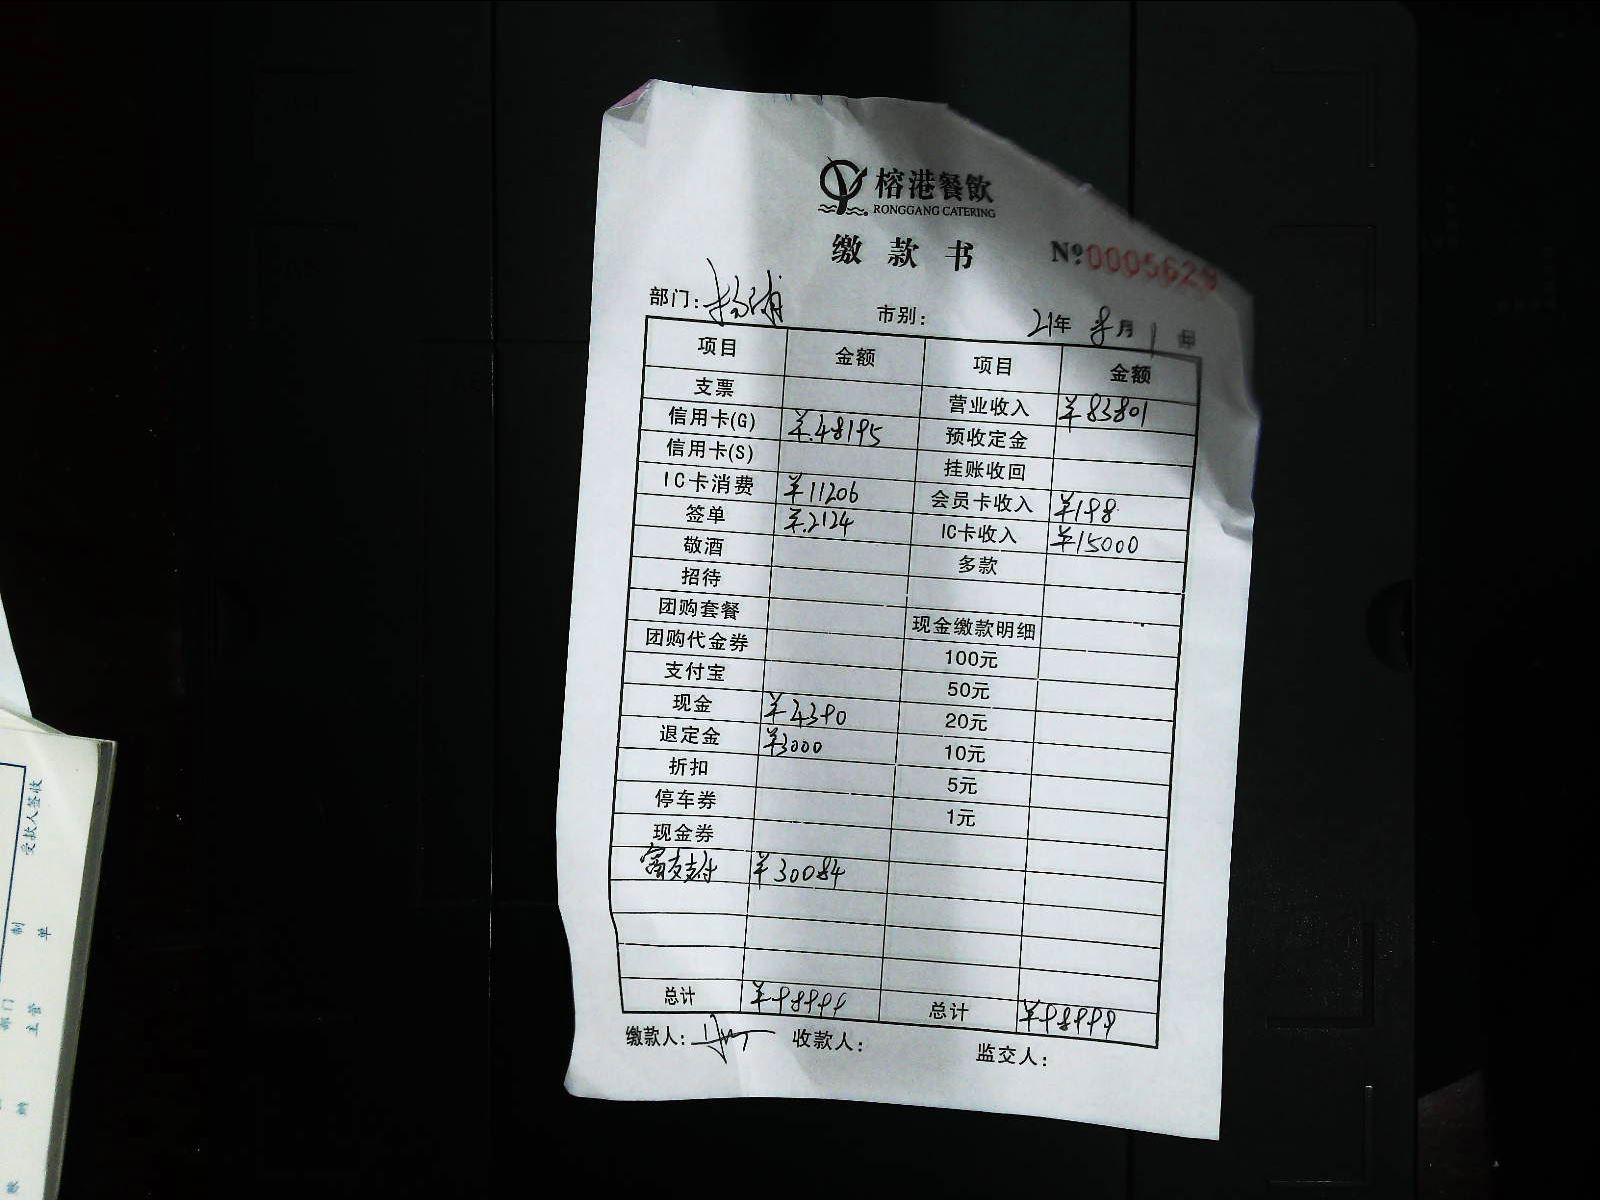 榕港餐饮
RONGGANG CATERING
缴款书 №0005629
部门: 杨浦 市别: 21年 8月 1日
项目 金额 项目 金额
支票 营业收入 ¥83801
信用卡(G) ¥48195 预收定金
信用卡(S) 挂账收回
IC卡消费 ¥11206 会员卡收入 ¥198
签单 ¥2124 IC卡收入 ¥15000
敬酒 多款
招待
团购套餐 现金缴款明细
团购代金券 100元
支付宝 50元
现金 ¥4390 20元
退定金 ¥3000 10元
折扣 5元
停车券 1元
现金券
富友支付 ¥30084
总计 ¥98999 总计 ¥98999
缴款人: 收款人: 监交人:
受款人签收
制单
部门主管